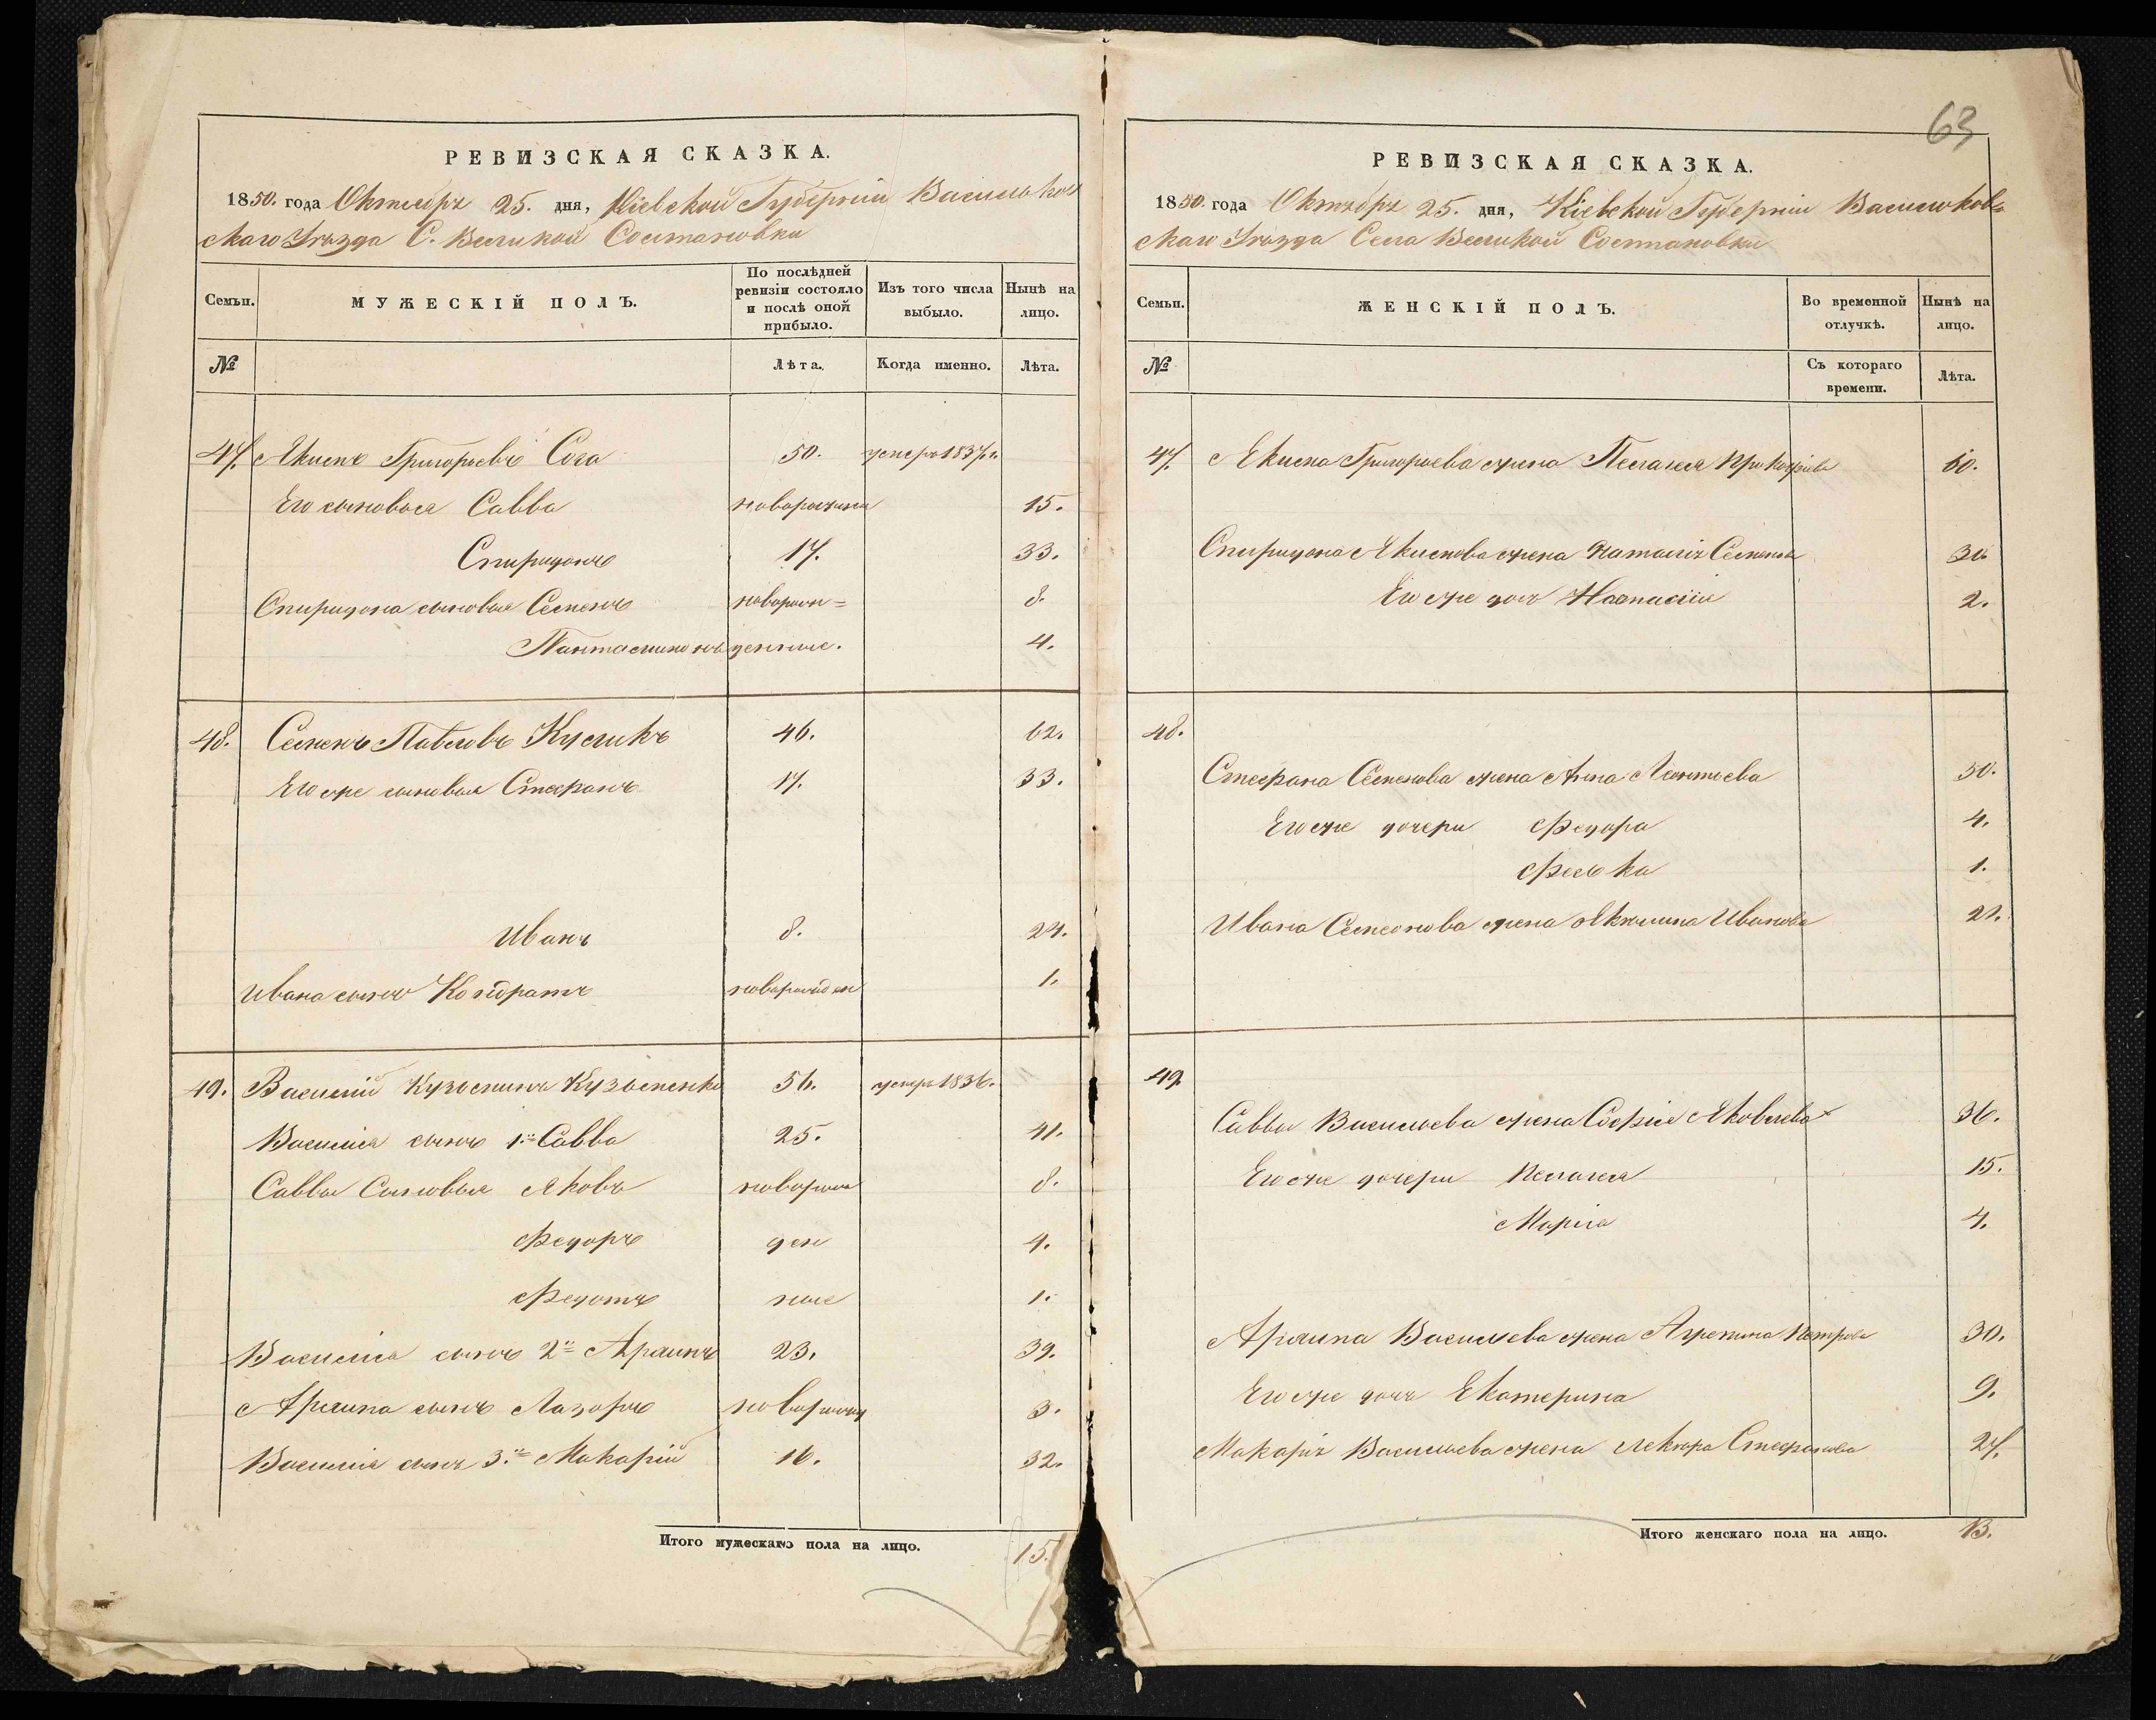 63
РЕВИЗСКАЯ СКАЗКА.
1850. года Октября 25. дня, Кіевской Губерніи Васильков
скаго Уѣзда С. Великой Солтановки
Семьи.
МУЖЕСКІЙ ПОЛЪ.
По послѣдней ревизіи состояло и послѣ оной прибыло.
Изъ того числа выбыло.
Нынѣ на лицо.
№
Лѣта.
Когда именно.
Лѣта.
47. Якимъ Григорьевъ 50. умеръ 1837 г.
Его сыновья Савва 15.
Спиридонъ 17. 33.
Спиридона сыновья Семенъ новорож= 8.
Пантелимонъ денные. 4.
48. Семенъ Павловъ Куликъ 46. 62.
Его же сыновья Стефанъ 17. 33.
Иванъ 8. 24.
Ивана сынъ Кондратъ новорожден 1.
49. Василій Кузьминъ Кузьменко 56. умеръ 1836.
Василія сынъ 1й Савва 25. 41.
Саввы Сыновья Яковъ новорож 8.
Федоръ ден 4.
Федотъ ные 1.
Василія сынъ 2й 23. 39.
сынъ Лазоръ 3.
Василія сынъ 3й Макарій 16. 32.
Итого мужескаго пола на лицо. 15.
РЕВИЗСКАЯ СКАЗКА.
1850 года Октября 25. дня, Кіевской Губерніи Васильков=
скаго Уѣзда Села Великой Солтановки
Семьи.
ЖЕНСКІЙ ПОЛЪ.
Во временной отлучкѣ.
Нынѣ на лицо.
№
Съ котораго времени.
Лѣта.
47. Якима Григорьева жена Пелагея 60.
Спиридона Якимова жена Наталія Семенова 30.
Его же дочь Настасія 2.
48.
Стефана Семенова жена Анна Леонтьева 30.
Его же дочери Федора 4.
Фекла 1.
Ивана Семенова жена Акилина Иванова 21.
49.
Саввы Васильева жена Софія Яковлева 36.
Его же дочери Пелагея 15.
Марія 4.
Васильева жена Агрепина Петрова 30.
Его же дочь Екатерина 9.
Макарія Васильева жена Стефанова 27.
Итого женскаго пола на лицо. 13.